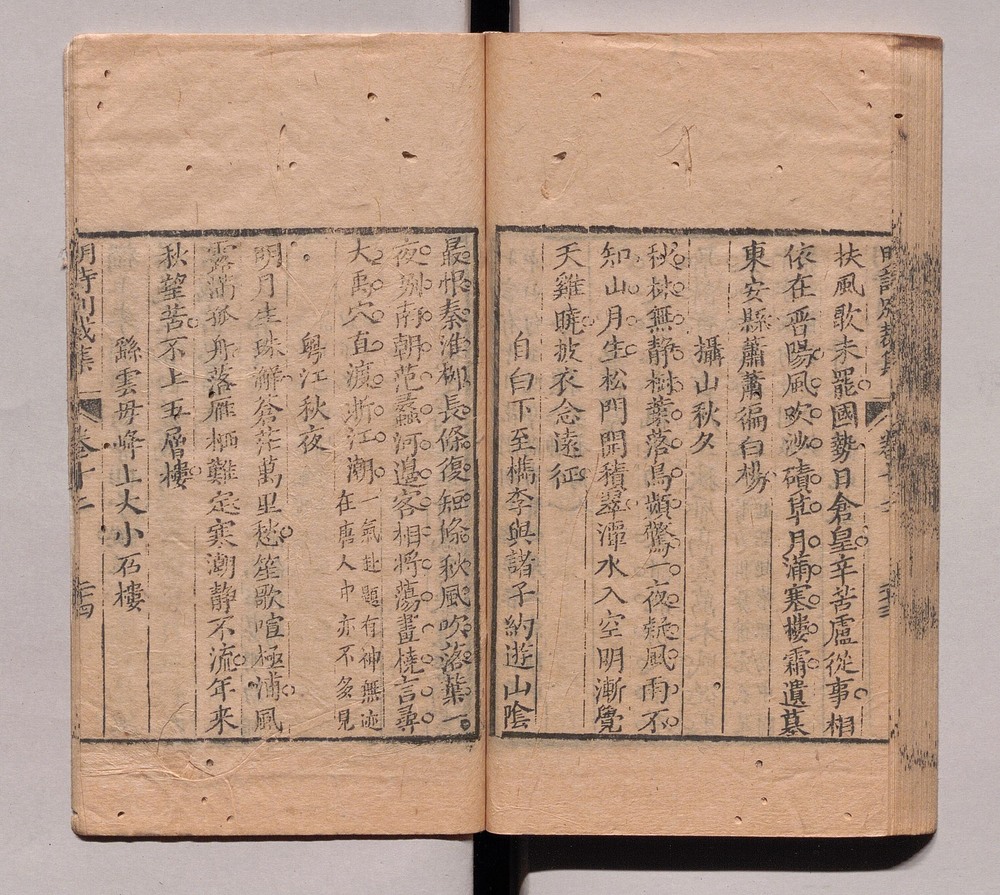 明詩別裁集
卷十二
扶風歌未罷國勢日倉皇辛苦盧從事相
依在晋陽風吹沙磧草月滿塞樓霜遺墓
東安縣蕭蕭徧白楊
攝山秋夕
秋林無靜樹葉落鳥頻驚一夜疑風雨不
知山月生松門開積翠潭水入空明漸覺
天雞曉披衣念遠征
自白下至檇李與諸子約遊山陰
最恨秦淮柳長條復短條秋風吹落葉一
夜別南朝范蠡河邊客相將蕩畫橈言尋
大禹穴直渡浙江潮一氣赴題有神無迹
在唐人中亦不多見
粵江秋夜
明月生珠海蒼茫萬里愁笙歌喧極浦風
露滿孤舟落雁栖難定寒潮靜不流年來
秋望苦不上五層樓
繇雲母峰上大小石樓
明詩別裁集
卷十二